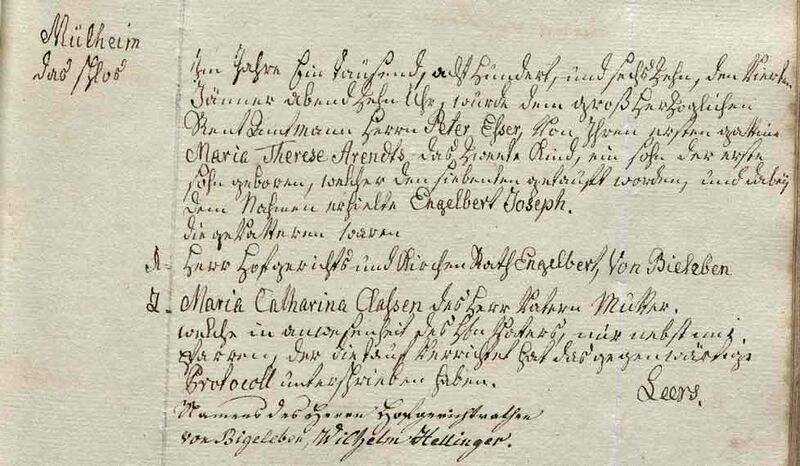 Mülheim
das schlos
Im Jahre Ein tausend, acht hundert, und sechszehn, den vierten
Jänner abend Zehn Uhr, wurde dem großherzoglichen
Rentamtmann Herrn Peter Esser, von Ihren ersten gattine
Maria Therese Arendts, das zweite Kind, ein sohn der erste
sohn geboren, welcher den siebenten getauft worden, und dabey
dem Nahmen erhielte Engelbert Joseph.
die gevatteren waren
1. Herr Hofgerichts und Kirchen Rath Engelbert, von Bieleben
2. Maria Catharina Classen des Herr Vatern Mutter.
welche in anwesenheit des Hrn Vaters, nur nebst mir.
Pfarren, der die tauf verrichtet hat das gegenwärtige
Protocoll unterschrieben haben.
Leers.
Namens des Herrn Hofgerichtrathen
von Bigeleben, Wilhelm Hellinger.